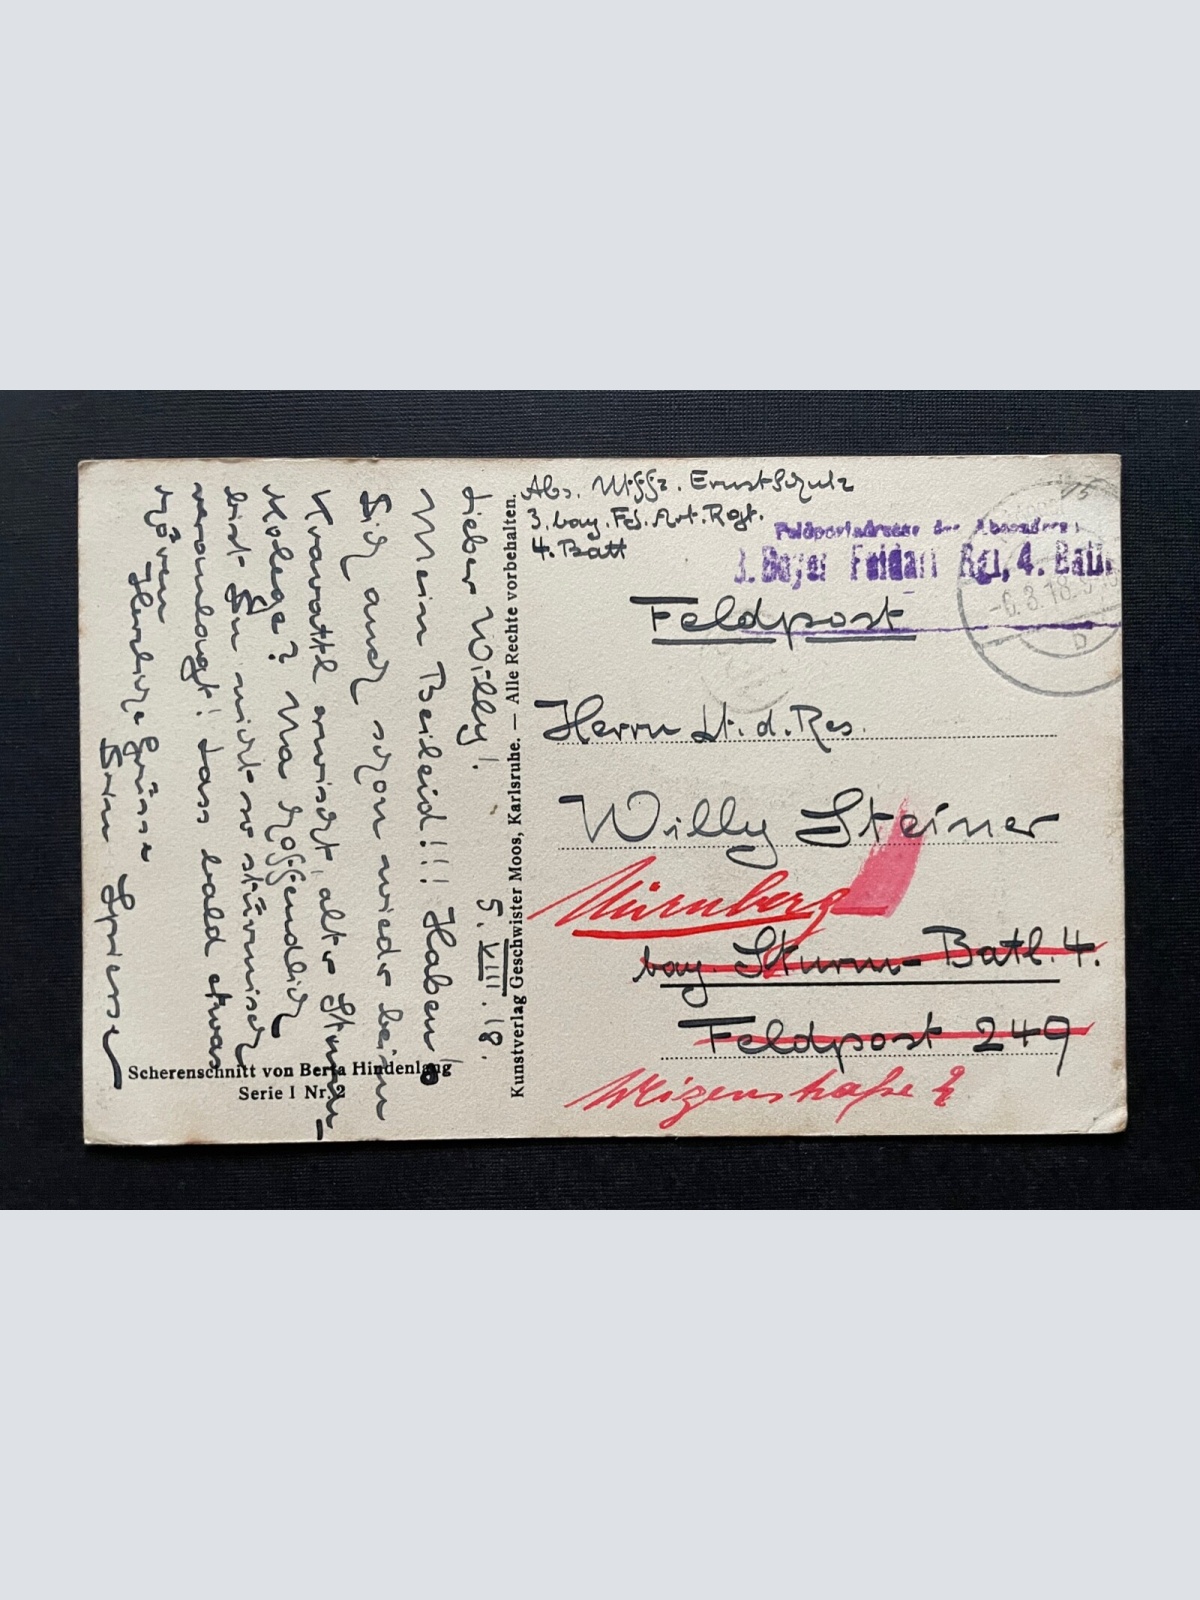 Abs. Uffz. Ernst Schulz
3. bay. Fd. Art. Rgt.
4. Batt
Feldpostadresse des Absenders:
3. Bayer Feldart Rgt, 4. Battr
-6.8.18.
b
Feldpost
Herrn Lt. d. Res.
Willy Steiner
Nürnberg
bay Sturm-Batl. 4.
Feldpost 249
Weigenstraße 2
Kunstverlag Geschwister Moos, Karlsruhe. — Alle Rechte vorbehalten.
5. VIII. 18.
Lieber Willy!
Mein Beileid!!! Haben
Dich auch schon wieder beim
Kravattl erwischt, alter Sturm-
kolege? Na hoffendlich
bist Du nicht so stürmisch
veranlagt! Lass bald etwas
hören
Herzliche Grüsse
Dein
Scherenschnitt von Berta Hindenlang
Serie I Nr. 2